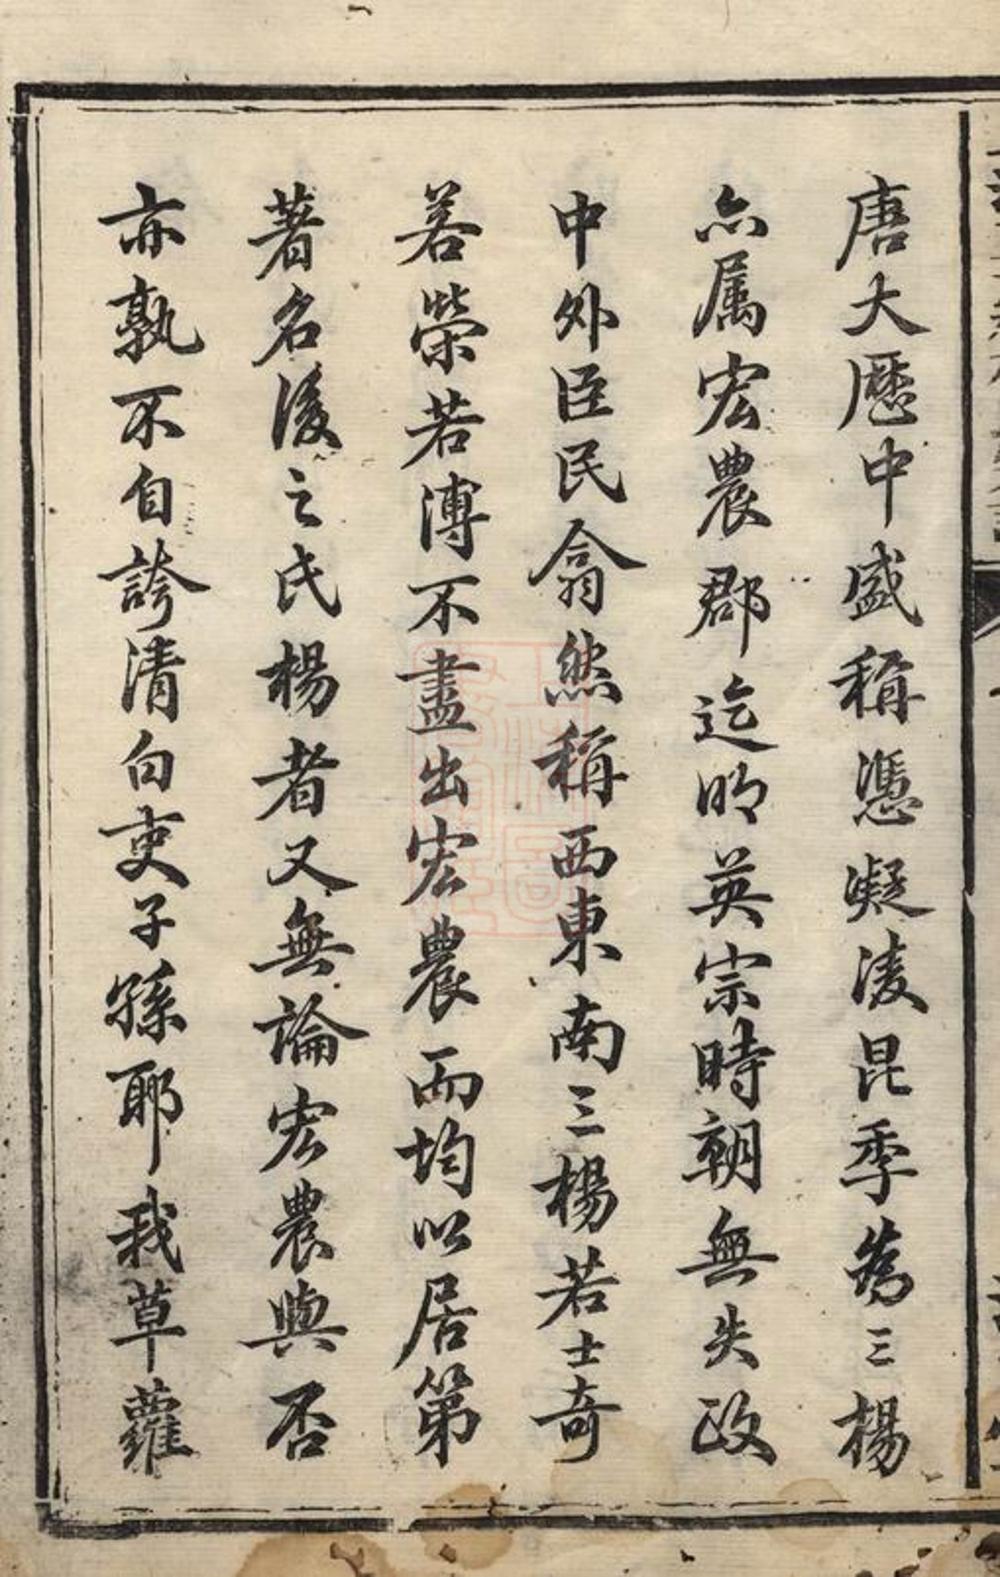 唐大歷中盛稱憑凝凌昆季為三楊
亦属宏農郡迄明英宗時朝無失政
中外臣民翕然稱西東南三楊若士奇
若榮若溥不盡出宏農而均以居第
著名後之氏楊者又無論宏農與否
亦孰不自誇清白吏子孫耶我草蘿